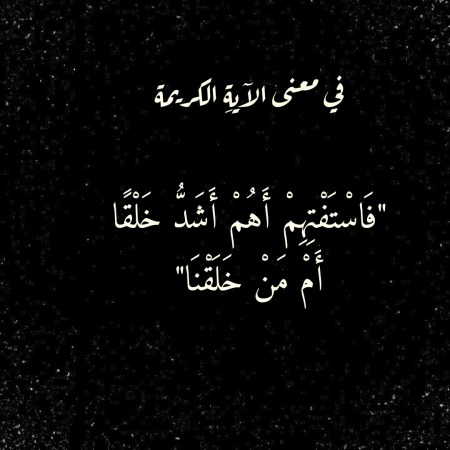 في معنى الآيةِ الكريمة
"فَاسْتَفْتِهِمْ أَهُمْ أَشَدُّ خَلْقًا
أَمْ مَنْ خَلَقْنَا"